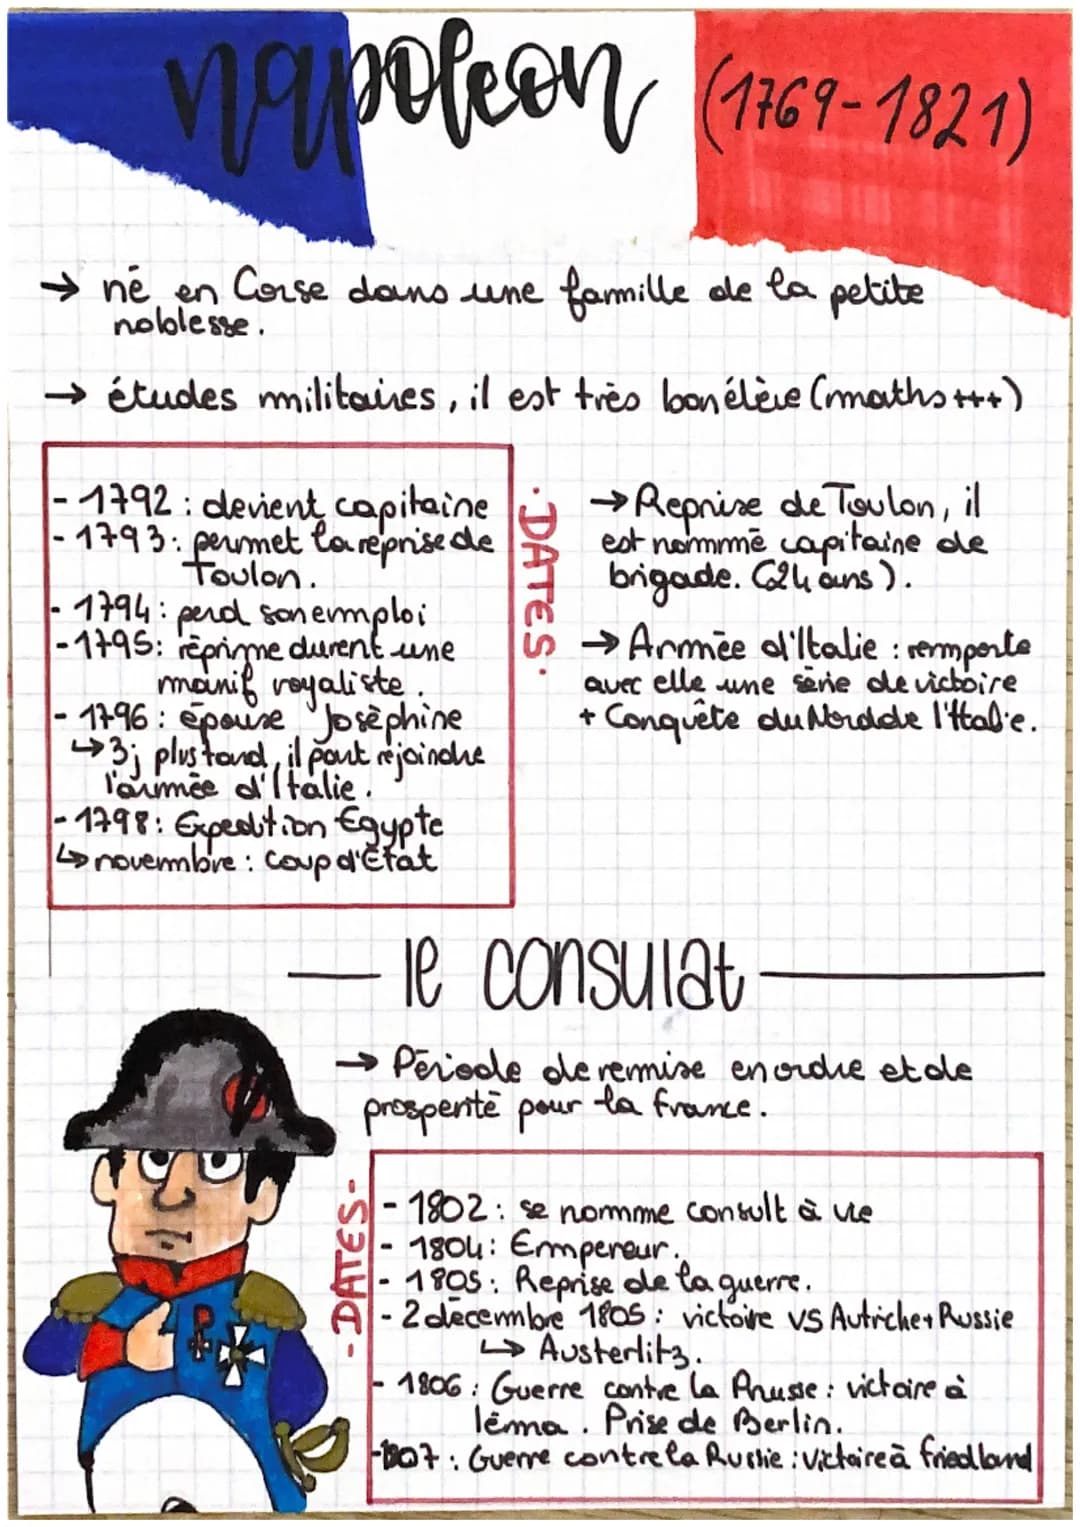 napoleon (1769-1821)
→ né en Corse dans une famille de la petite
noblesse.
→ études militaires, il est très bon élève (maths +++)
- 1792 : devient capitaine
- 1793 : permet la reprise de
Toulon.
- 1794 : perd son emploi
- 1795 : réprime durent une
manif royaliste.
- 1796 : épouse Joséphine
↳ 3j plus tard, il part rejoindre
l'armée d'Italie.
- 1798 : Expedition Egypte
↳ novembre : Coup d'État
· DATES ·
→ Reprise de Toulon, il
est nommé capitaine de
brigade. (24 ans).
→ Armée d'Italie : remporte
avec elle une série de victoire
+ Conquête du Nord de l'Italie.
le consulat
→ Période de remise en ordre et de
prosperité pour la france.
- DATES -
- 1802 : se nomme consult à vie
- 1804 : Empereur.
- 1805 : Reprise de la guerre.
- 2 décembre 1805 : victoire VS Autriche + Russie
↳ Austerlitz.
- 1806 : Guerre contre la Prusse : victoire à
Iéma. Prise de Berlin.
- 1807 : Guerre contre la Russie : victoire à friedland